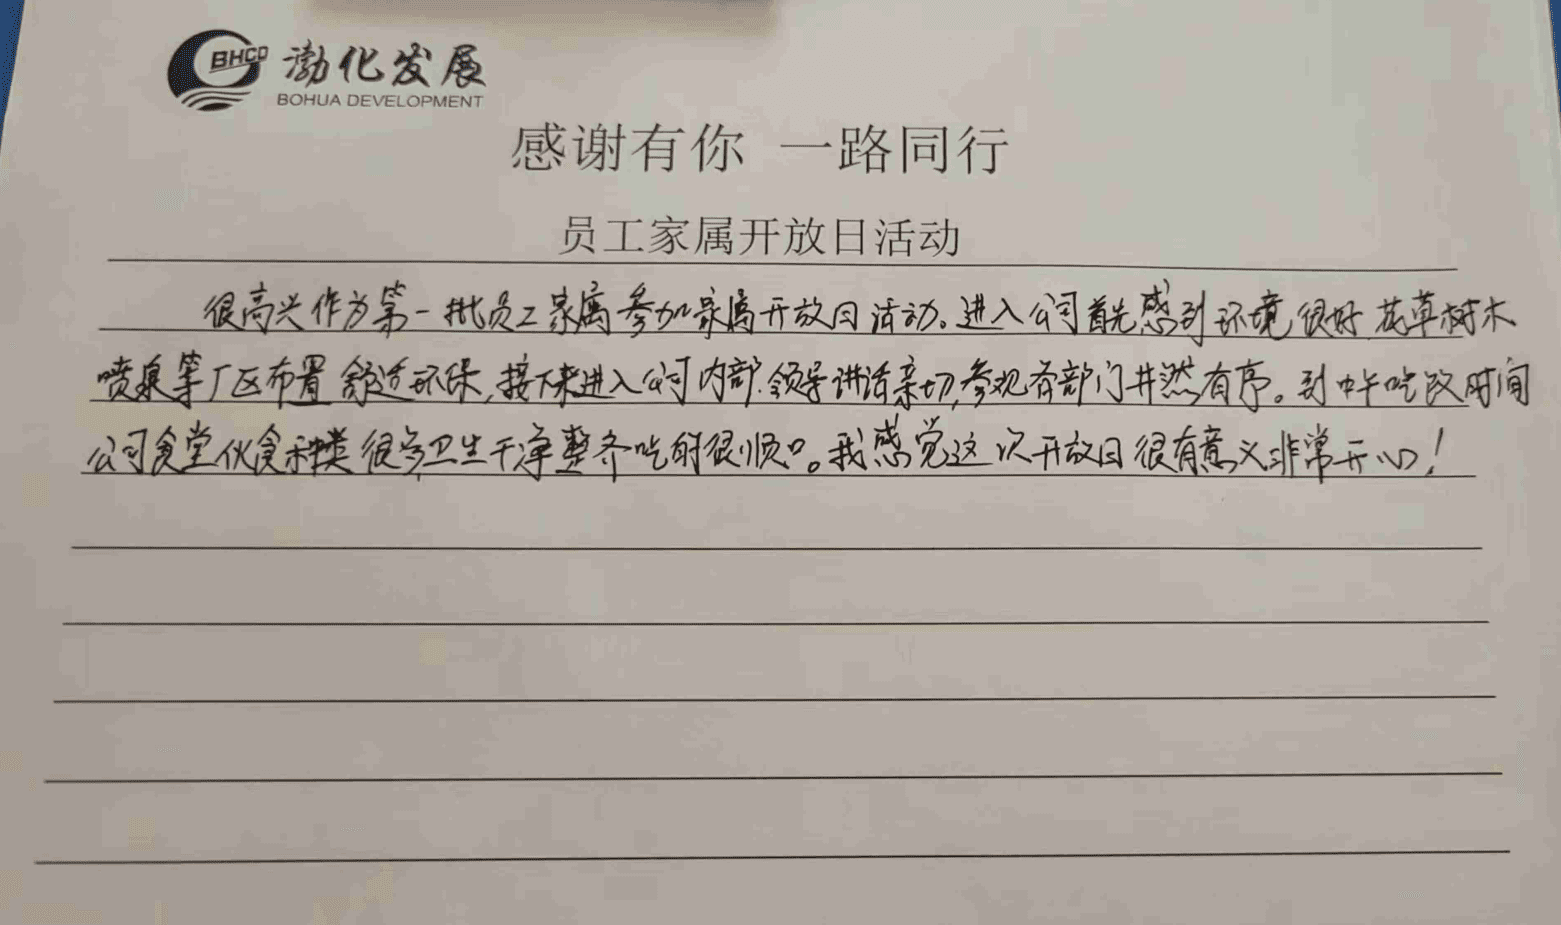 BHCD 渤化发展
BOHUA DEVELOPMENT
感谢有你 一路同行
员工家属开放日活动
很高兴作为第一批员工家属参加家属开放日活动。进入公司首先感到环境很好花草树木
喷泉等厂区布置舒适环保,接下来进入公司内部.领导讲话亲切,参观各部门井然有序。到中午吃饭时间
公司食堂伙食种类很多,卫生干净整齐吃的很顺口。我感觉这次开放日很有意义非常开心!